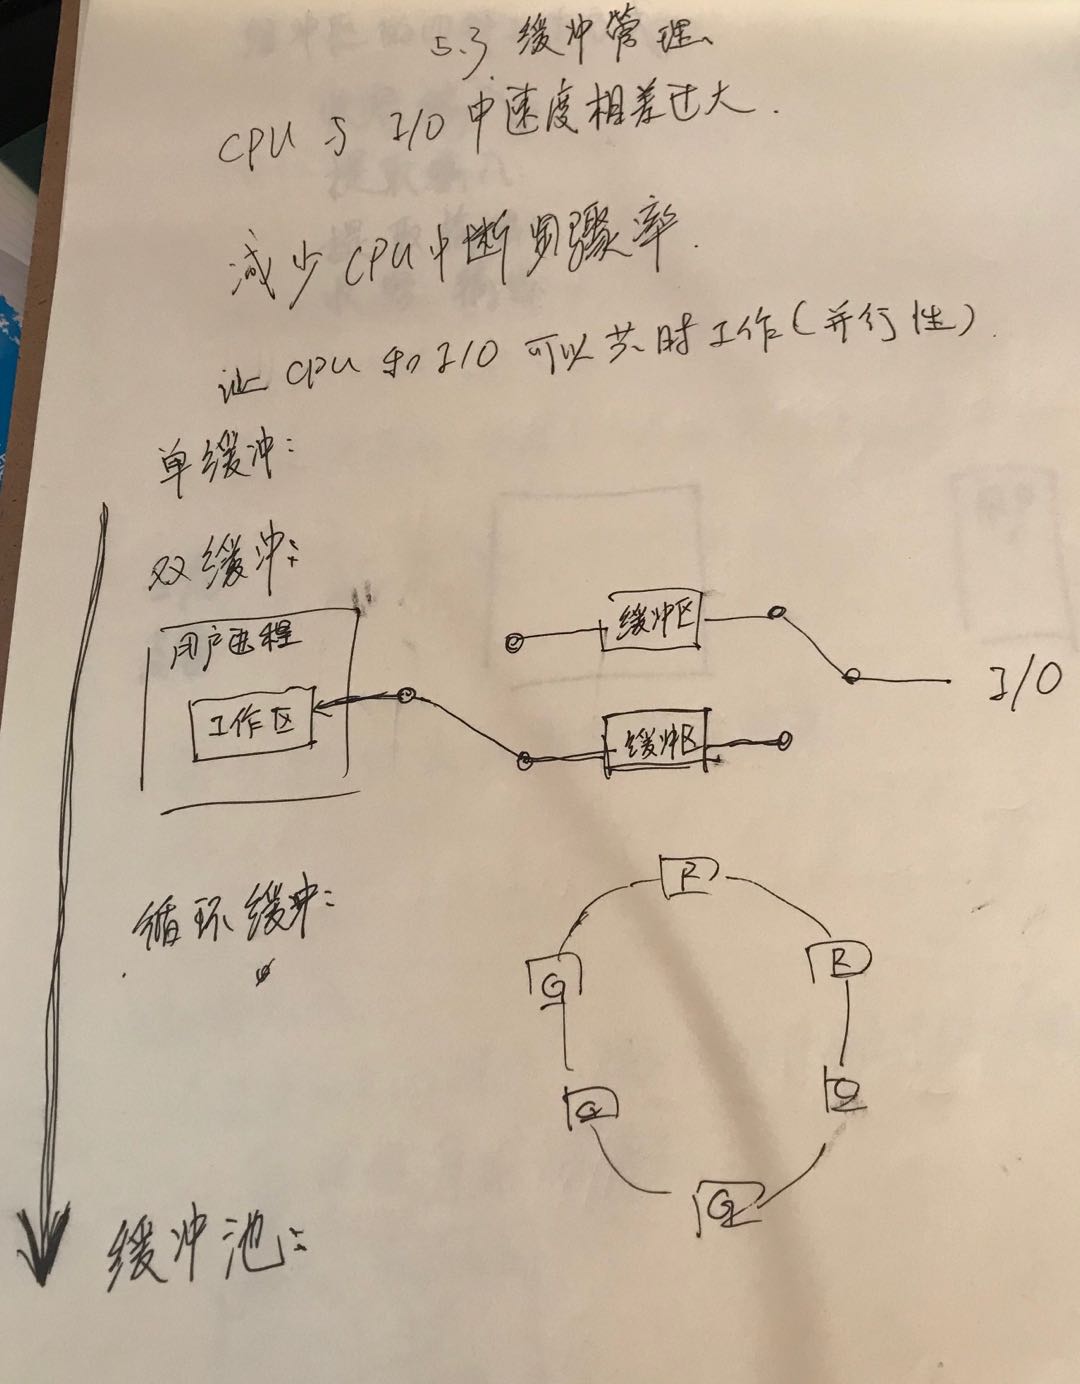 5.3 缓冲管理
CPU与I/O中速度相差过大.
减少CPU中断频率.
让CPU和I/O可以共时工作(并行性).
单缓冲:
双缓冲:
用户进程
工作区
缓冲区
缓冲区
I/O
循环缓冲:
R
R
G
G
缓冲池: